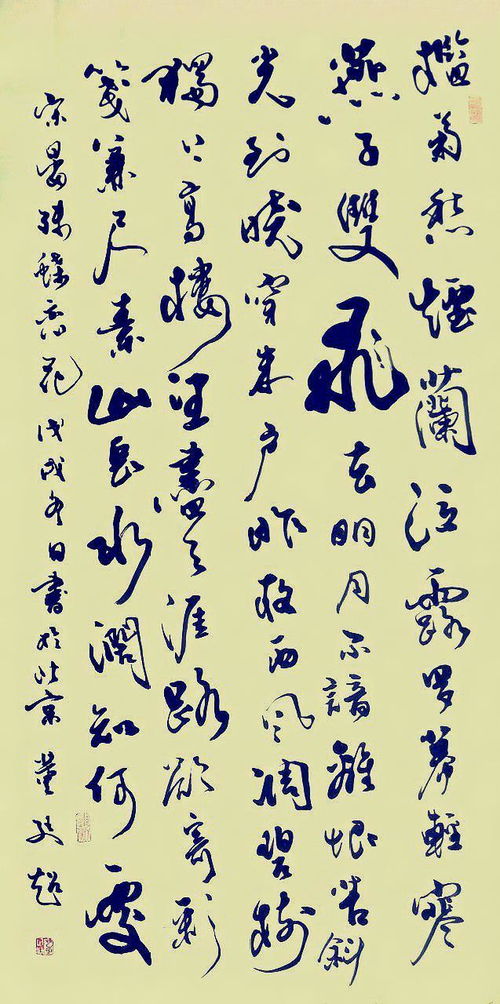 檻菊愁煙蘭泣露羅幕輕寒
燕子雙飛去明月不諳離恨苦斜
光到曉穿朱戶昨夜西風凋碧樹
獨上高樓望盡天涯路欲寄彩
箋兼尺素山長水闊知何處
宋晏殊蝶戀花戊戌冬日書於北京董超